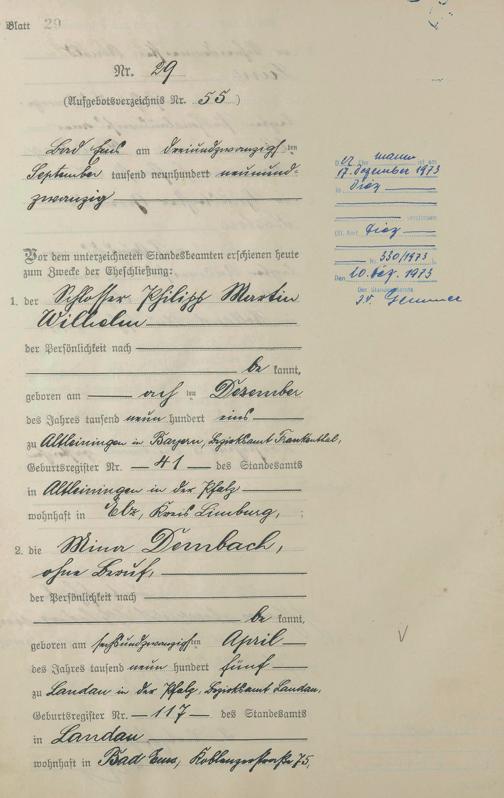 Blatt 29
Nr. 29
(Aufgebotsverzeichnis Nr. 55)
Bad Ems am dreiundzwanzigsten
September tausend neunhundert neunund-
zwanzig
Vor dem unterzeichneten Standesbeamten erschienen heute
zum Zwecke der Eheschließung:
1. der Schlosser Philipp Martin
Wilhelm
der Persönlichkeit nach
be kannt,
geboren am ten Dezember
des Jahres tausend neun hundert eins
zu Altleiningen in Bayern, Bezirksamt Frankenthal,
Geburtsregister Nr. 41 des Standesamts
in Altleiningen in der Pfalz
wohnhaft in Elz, Kreis Limburg, ;
2. die Mina Dembach,
ohne Beruf,
der Persönlichkeit nach
be kannt,
geboren am sechsundzwanzigsten April
des Jahres tausend neun hundert fünf
zu Landau in der Pfalz, Bezirksamt Landau,
Geburtsregister Nr. 117 des Standesamts
in Landau
wohnhaft in Bad Ems, Koblenzerstraße 75,
Ehemann ist am
17. Dezember 1973
in Diez
verstorben
Diez
Nr. 330/1973
Den 1973
Der Standesbeamte